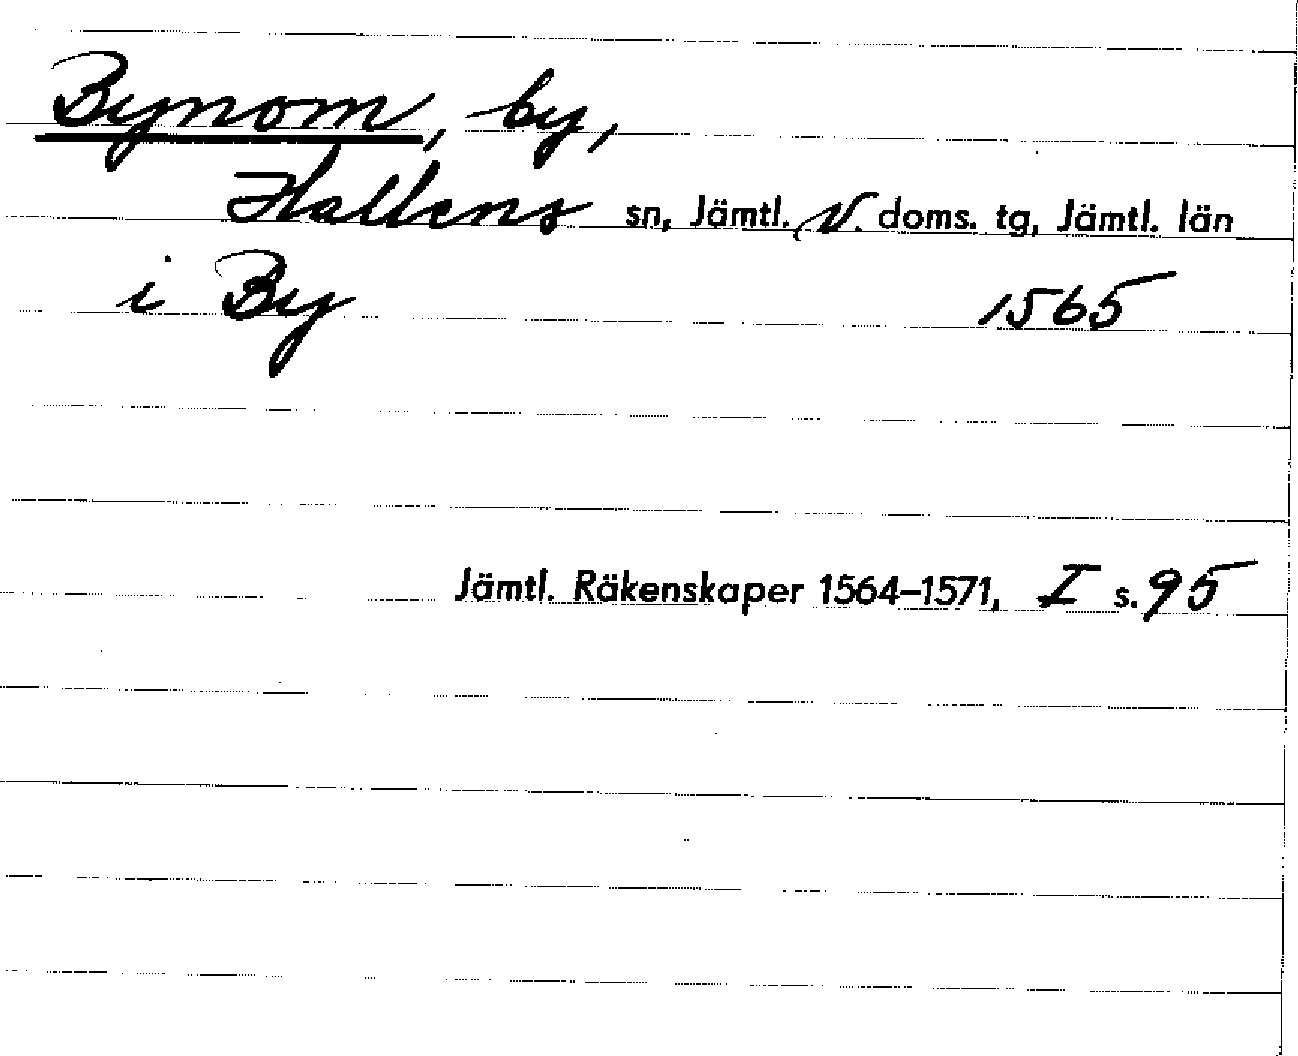 Bynom, by,
Hallens sn, Jämtl. V. doms. tg, Jämtl. län
i By 1565
Jämtl. Räkenskaper 1564–1571, I s. 95